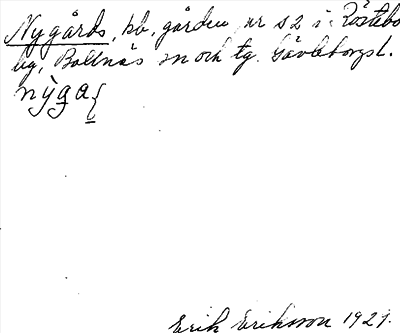 Nygårds, hb, gården nr 52 i Röstebo
by, Bollnäs sn och tg. Gävleborgs l.
nỳga
Erik Eriksson 1921.